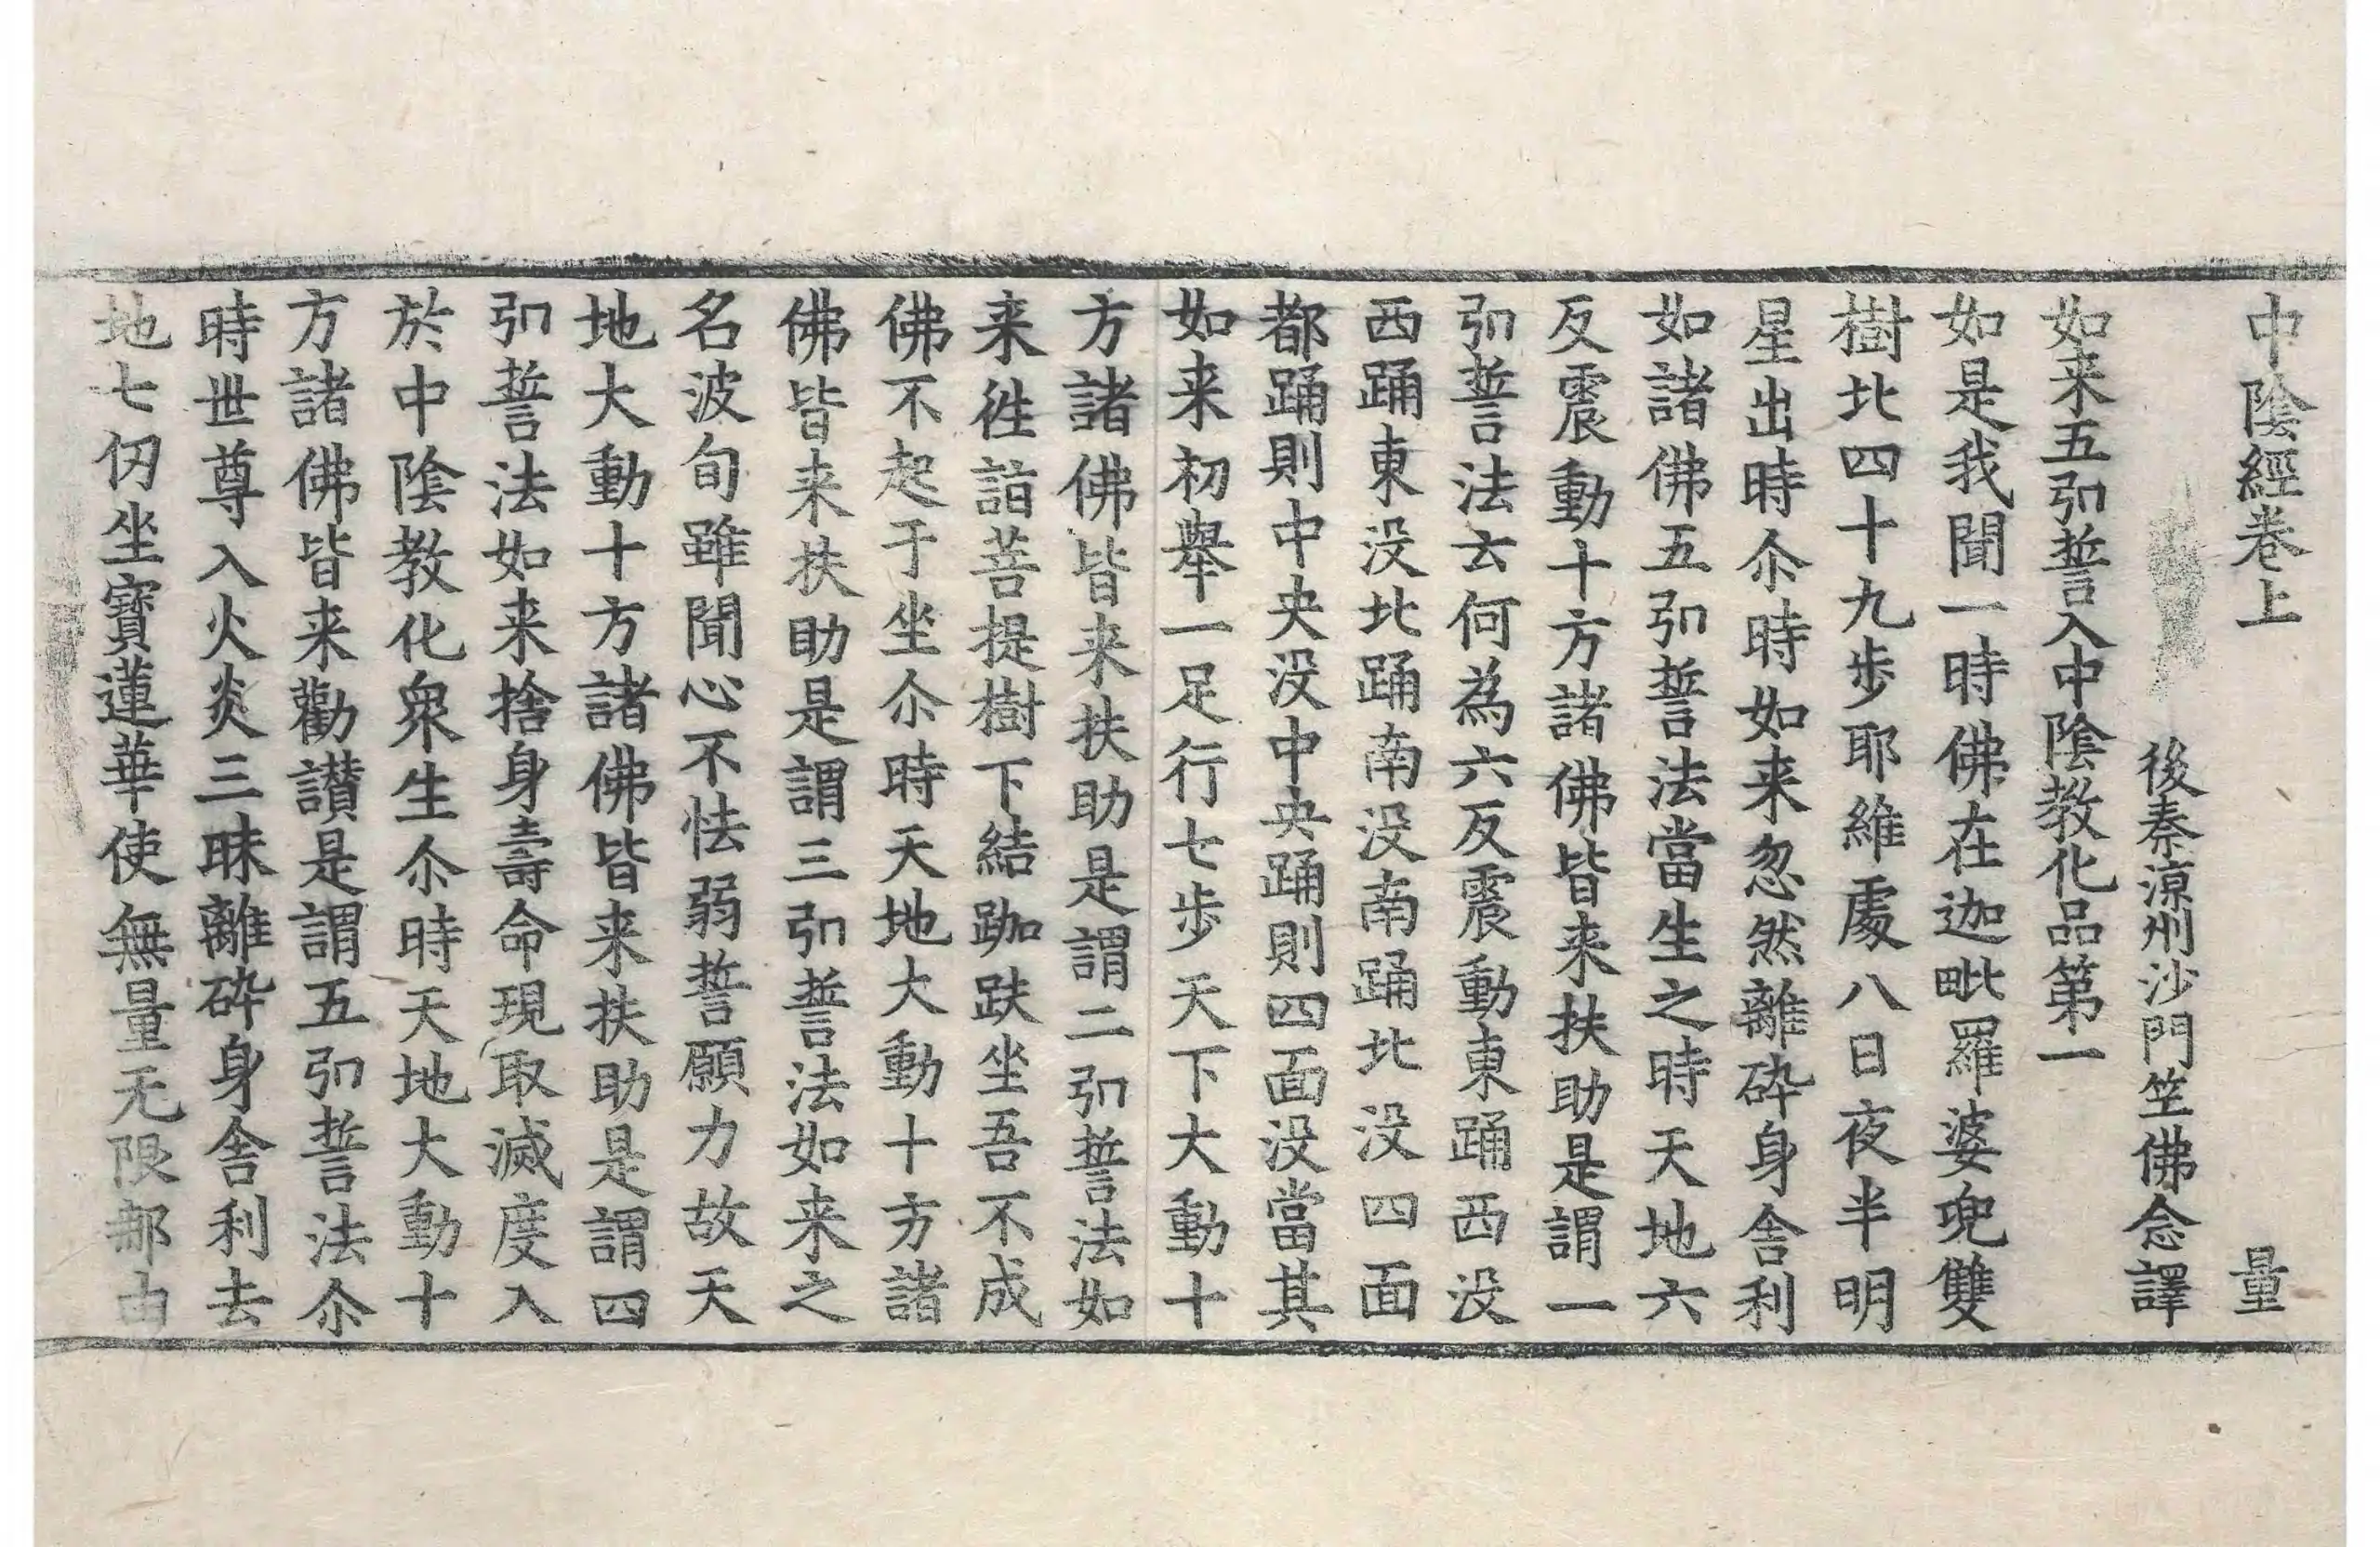 中陰經卷上 量
後秦涼州沙門竺佛念譯
如来五弘誓入中陰教化品第一
如是我聞一時佛在迦毗羅婆兜雙
樹北四十九步耶維處八日夜半明
星出時尒時如来忽然離碎身舍利
如諸佛五弘誓法當生之時天地六
反震動十方諸佛皆来扶助是謂一
弘誓法云何為六反震動東踊西没
西踊東没北踊南没南踊北没四面
都踊則中央没中央踊則四面没當其
如来初舉一足行七步天下大動十
方諸佛皆来扶助是謂二弘誓法如
来徃詣菩提樹下結跏趺坐吾不成
佛不起于坐尒時天地大動十方諸
佛皆来扶助是謂三弘誓法如来之
名波旬雖聞心不怯弱誓願力故天
地大動十方諸佛皆来扶助是謂四
弘誓法如来捨身壽命現取滅度入
於中陰教化衆生尒時天地大動十
方諸佛皆来勸讃是謂五弘誓法尒
時世尊入火炎三昧離碎身舍利去
地七仞坐寶蓮華使無量无限鄣由